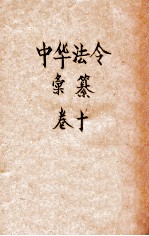 中华法令
彙纂
卷十